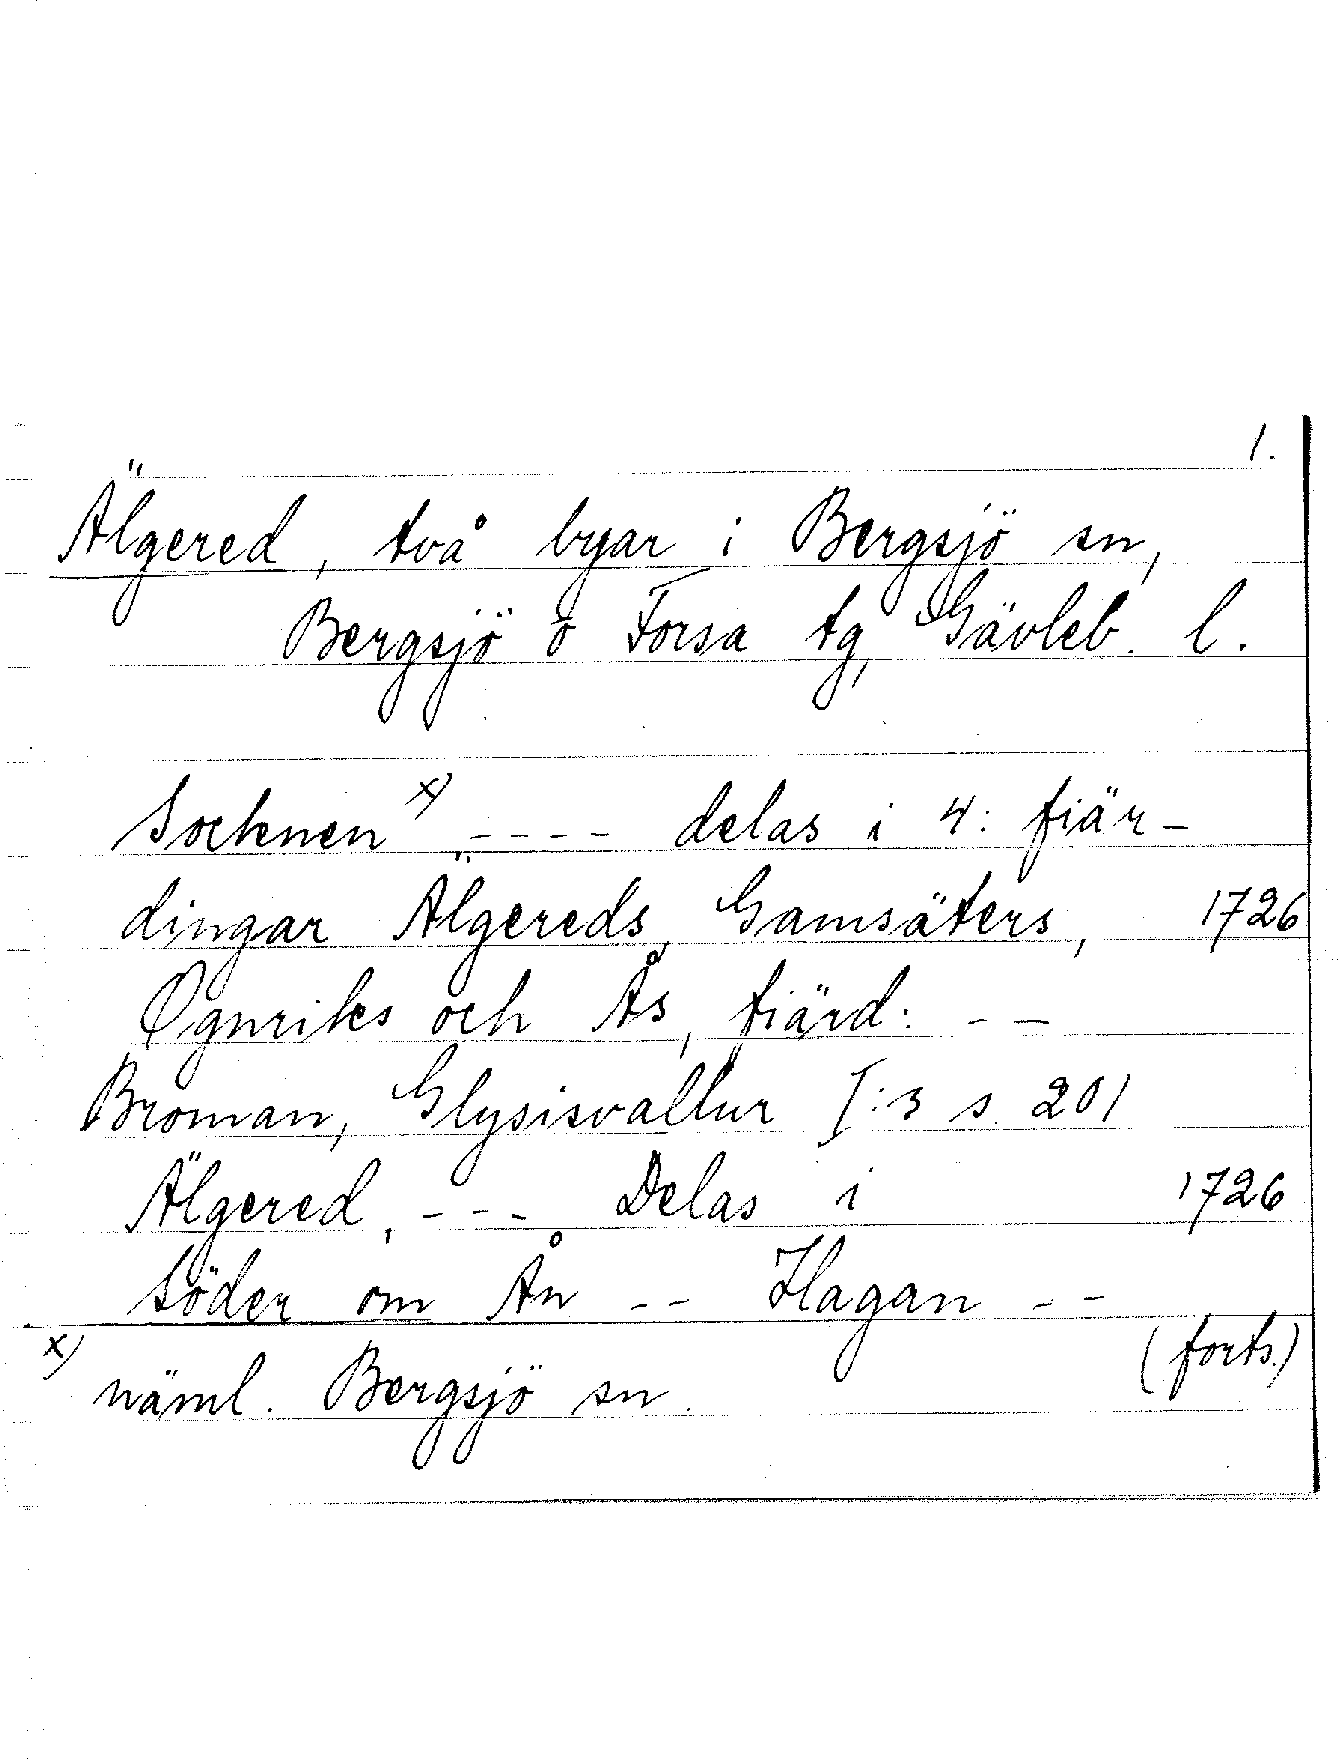 1.
Älgered, två byar i Bergsjö sn,
Bergsjö o Forsa tg, Gävleb. l.
Socknen x) ---- delas i 4: fiär-
dingar Älgereds, Gamsäters, 1726
Ognriks och Ås, fiärd: --
Broman, Glysisvallur I:3 s. 201
Älgered, --- Delas i 1726
Söder om Ån -- Hagan --
(forts.)
x) näml. Bergsjö sn.